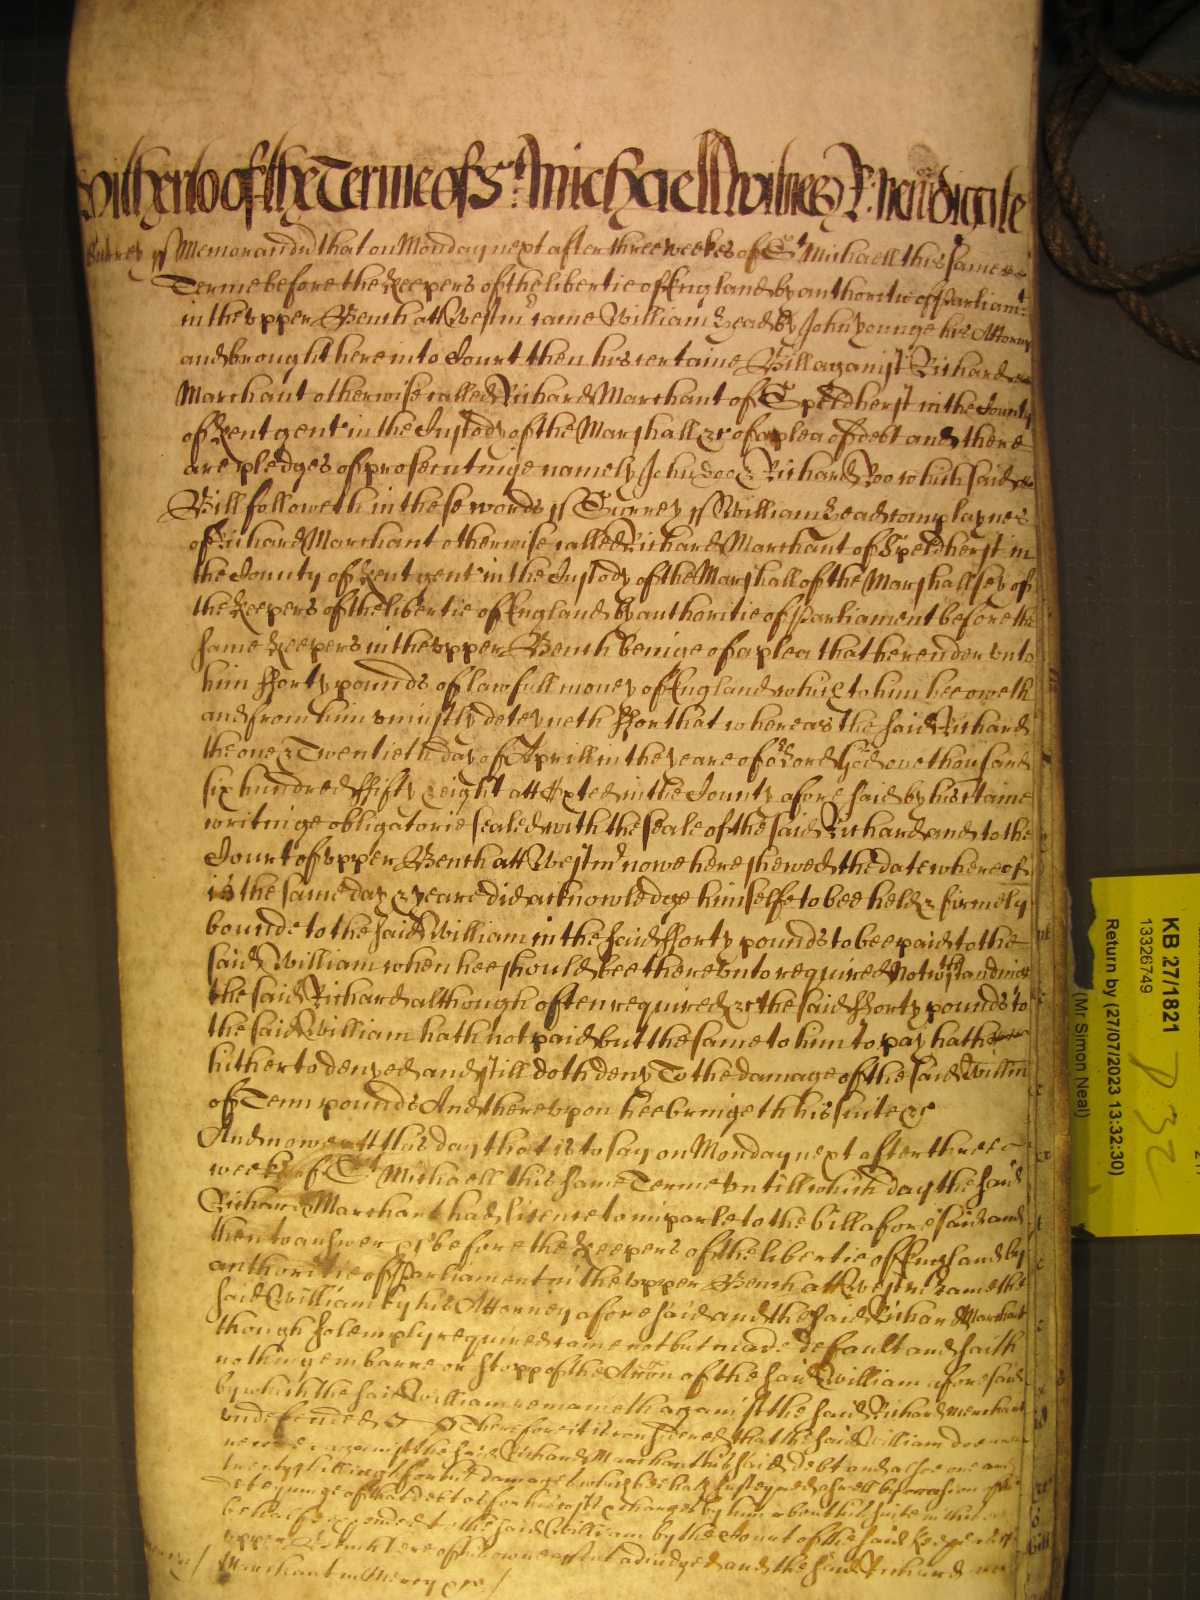 hitherto of the Terme of St Michaell witnes R: newdigate
Surrey ss Memorandd that on Monday next after three weekes of St Michaell this same
Terme before the Keepers of the libertie of England by authoritie of Parliamt
in the upper Bench att Westmr came William Head by John Younge his Attorney
and brought here into Court then his certaine Bill against Richard
Marchant otherwise called Richard Marchant of Speldherst in the County
of Kent gent in the Custody of the Marshall &c of a plea of debt and there
are pledges of prosecutinge namely John Doe & Richard Roo which said
Bill followeth in these words ss Surrey ss William Head complaynes
of Richard Marchant otherwise called Richard Marchant of Speldherst in
the County of Kent gent in the Custody of the Marshall of the Marshallsey of
the Keepers of the libertie of England by authoritie of Parliament before the
same Keepers in the upper Bench beinge of a plea that he render unto
him fforty pounds of lawfull money of England which to him hee oweth
and from him uniustly deteyneth ffor that whereas the said Richard
the one & Twentieth day of Aprill in the yeare of or Lord God one thousand
six hundred ffifty & eight att in the County aforesaid by his certaine
writinge obligatorie sealed with the seale of the said Richard and to the
Court of upper Bench att Westmr nowe here shewed the date whereof
is the same day & yeare did acknowledge himselfe to bee held & firmely
bounde to the said William in the said fforty pounds to bee paid to the
said William when hee should bee thereunto required Notwthstandinge
the said Richard although often required &c the said fforty pounds to
the said William hath not paid but the same to him to pay hath
hitherto denyed and still doth deny To the damage of the said Willm
of Tenn pounds And thereupon hee bringeth his suite &c
And nowe att this day that is to say on Monday next after three
weeks of St Michaell this same Terme untill which day the said
Richard Marchant had licence to imparle to the bill aforesaid and
then to answer &c before the Keepers of the libertie of England by
authoritie of Parliament in the upper Bench att Westmr came the
said William by his Attorney aforesaid and the said Richard Marchant
though solemply required came not but made default and saith
nothinge in barre or stopp of the Accon of the said William aforesaid
by which the said William remaineth against the said Richard Merchant
undefended &c Therefore it is considered that the said William doe
against the said Richard Marchant his said debt and alsoe one and
twenty shillings for his damages which hee hath susteyned aswell by occasion of the
deteyninge of that debt as for his costs & charges by him about his suite in this
behalfe expended to the said William by the Court of the said Keepers
upper Bench here of his owne assent adiudged and the said Richard
Marchant in Mercy &c
KB 27/1821
13326749
Return by (27/07/2023 13:32:30)
(Mr Simon Neal)
P 32